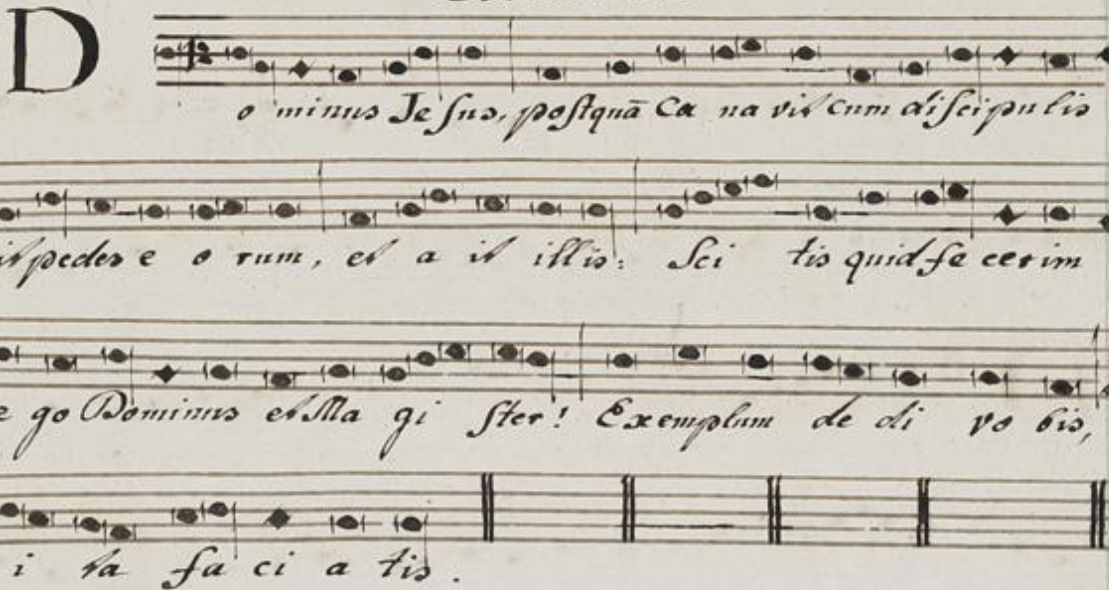 D
o minus Jesus, postquā Cæ na vit cum discipulis
it pedes e o rum, et a it illis: Sci tis quid fe cerim
e go Dominus et Ma gi ster! Exemplum de di vo bis,
i ta fa ci a tis.